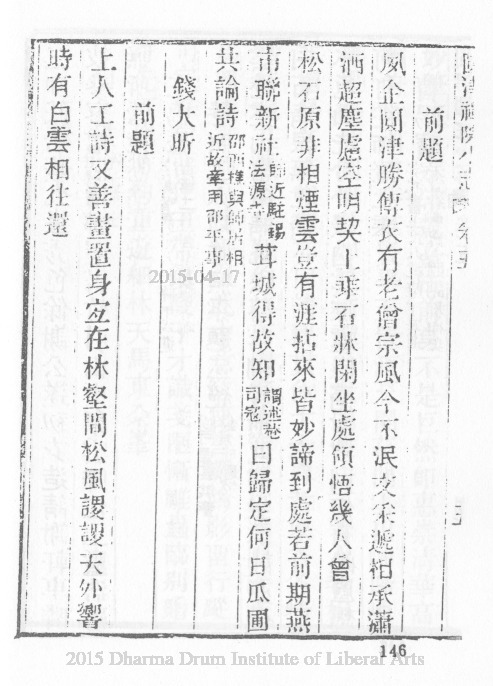 圓津禪院小志 卷五
前題
夙企圓津勝傳衣有老僧宗風今不泯文采遞相承瀟
洒超塵慮空明契上乘石牀閑坐處領悟幾人曾
松石原非相煙雲豈有涯拈來皆妙諦到處若前期燕
市聯新社師近駐錫法源寺茸城得故知謂述菴司寇曰歸定何日瓜圃
共論詩邵西樵與師居相近故牽用邵平事
錢大昕
前題
上人工詩又善畫置身宜在林壑間松風謖謖天外響
時有白雲相往還
2015-04-17
146
2015 Dharma Drum Institute of Liberal Arts